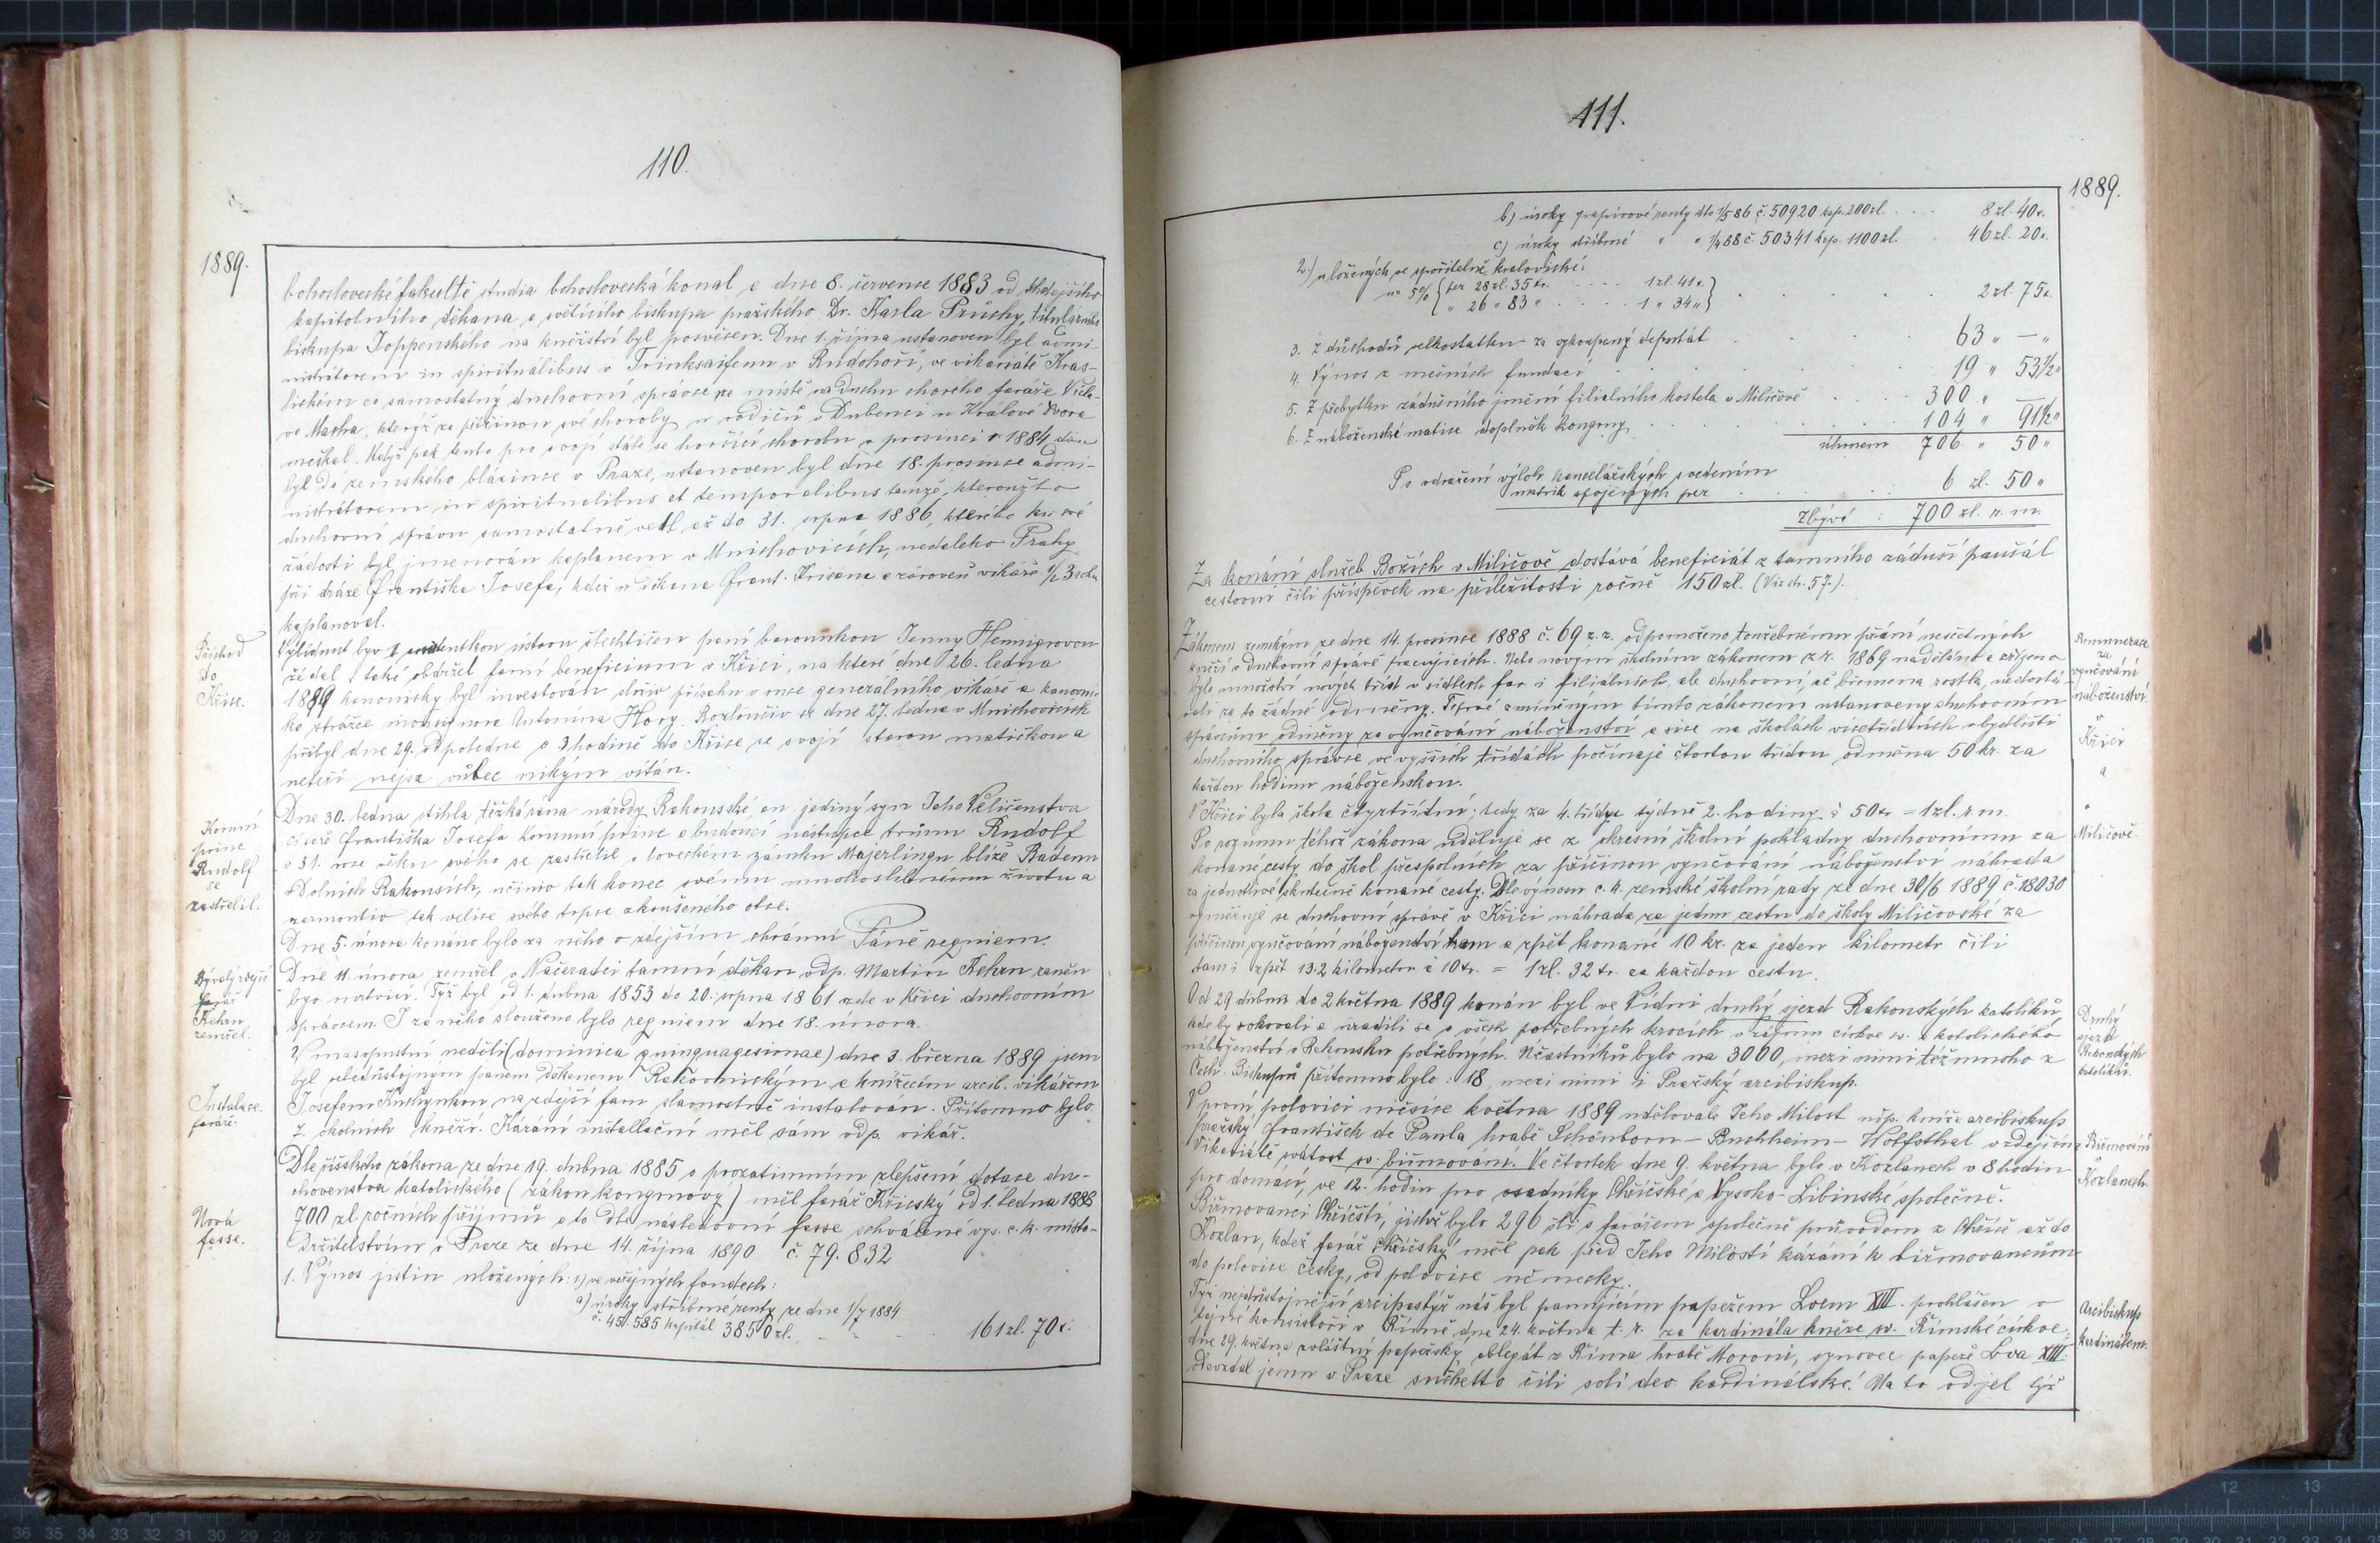 110.
1889.
bohoslovecké fakultě studia bohoslovecká konal a dne 8. července 1883 od tehdejšího
kapitolního děkana a světícího biskupa pražského Dr. Karla Průchy, titulárního
biskupa Joppenského na kněžství byl posvěcen. Dne 1. října ustanoven byl admi-
nistrátorem in spirituálibus v Trinksaifenu v Rudohoří, ve vikariátě Kras-
lickém co samostatný duchovní správce na místě na duchu chorého faráře Václa-
va Macha, kterýž za příčinou své choroby u rodičů v Dubenci u Králové Dvora
meškal. Když pak tento pro svoji stále se horšící chorobu v prosinci r. 1884 dán
byl do zemského blázince v Praze, ustanoven byl dne 18. prosince admi-
nistrátorem in spiritualibus et temporalibus tamže, kteroužto
duchovní správu samostatně vedl až do 31. srpna 1886, kterého ku své
žádosti byl jmenován kaplanem v Mnichovicích, nedaleko Prahy
při dráze Františka Josefa, kdež u děkana Frant. Krisana a zároveň vikáře 1/2 3 roku
kaplanoval.
Příchod
do
Křice.
Vybídnut byv ústavu šlechtičen paní baronkou Jenny Hennigrovou
žádal i také obdržel farní beneficium v Křici, na které dne 26. ledna
1889 kanonicky byl investován složiv přísahu v ruce generálního vikáře a kanovní-
ka strážce monsignora Antonína Hory. Rozloučiv se dne 27. ledna v Mnichovicích
přibyl dne 29. odpoledne o 3 hodině do Křice se svojí starou matičkou a
neteří nejsa vůbec nikým vítán.
Korunní
princ
Rudolf
se
zastřelil.
Dne 30. ledna stihla těžká rána národy Rakouské, an jediný syn Jeho Veličenstva
císaře Františka Josefa korunní princ a budoucí nástupce trůnu Rudolf
v 31. roce věku svého se zastřelil v loveckém zámku Majerlingu blíže Badenu
v Dolních Rakousích, učiniv tak konec svému mnohoslibnému životu a
zarmoutiv tak velice svého trpce zkoušeného otce.
Dne 5. února konáno bylo za něho v zdejším chrámu Páně requiem.
Bývalý zdejší
farář
Kehrn
zemřel.
Dne 11. února zemřel v Načeradci tamní děkan odp. Martin Kehrn raněn
byv mrtvicí. Týž byl od 1. dubna 1853 do 20. srpna 1861 zde v Křici duchovním
správcem. I za něho slouženo bylo requiem dne 18. února.
Instalace
faráře.
V masopustní neděli (dominica quinquagesimae) dne 3. března 1889 jsem
byl veledůstojným pánem děkanem Rakovnickým a knížecím arcib. vikářem
Josefem Kuchynkou na zdejší faru slavnostně instalován. Přítomno bylo
7. okolních kněží. Kázání installační měl sám vdp. vikář.
Nová
fasse.
Dle říšského zákona ze dne 19. dubna 1885 o prozatimním zlepšení dotace du-
chovenstva katolického (zákon kongruový) měl farář Křicský od 1. ledna 1888
700 zl. ročních příjmů a to dle následovní fasse schválené vys. c. k. místo-
držitelstvím v Praze ze dne 14. října 1890 č. 79.832
1. Výnos jistin uložených: 1) ve veřejných fondech:
a) úroky stříbrné renty ze dne 1/7 1884
č. 451.585 kapitál 3850 zl. 161 zl. 70 k.
111.
1889.
b) úroky papírové renty dto 1/5 86 č. 50920 kap. 200 zl. 8 zl. 40 k.
c) úroky stříbrné " " 1/4 88 č. 50341 kap. 1100 zl. 46 zl. 20 k.
2.) uložených ve spořitelně kralovické:
na 5% { per 28 zl. 35 kr. 1 zl. 41 k. }
" 26 " 83 " 1 " 34 " } 2 zl. 75 k.
3. Z důchodů velkostatku za vykoupený deputát 63 " — "
4. Výnos z mešních fundací 19 " 53 1/2 "
5. Z přebytku zádušního jmění filiálního kostela v Miličově 300 " —
6. Z náboženské matice doplněk kongruy 104 " 91 1/2 "
úhrnem 706 " 50 "
Po odražení výloh kancelářských s vedením
matrik spojených per 6 zl. 50 "
Zbývá : 700 zl. r. m.
Za konání služeb Božích v Miličově dostává beneficiát z tamního záduší paušál
cestovní čili příspěvek na příležitosti ročně 150 zl. (Viz str. 57.).
Remunerace
za
vyučování
náboženství
v
Křici
a
v
Miličově.
Zákonem zemským ze dne 14. prosince 1888 č. 69 z. z. odpomoženo toužebnému přání nesčetných
kněží v duchovní správě pracujících. Nebo novým školním zákonem z r. 1869 naděláno a zřízeno
bylo množství nových tříd v sídlech far i filiálních, ale duchovní, ač břemena rostla, nedostá-
vali za to žádné odměny. Teprvé zmíněným tímto zákonem ustanoveny duchovním
správcům odměny za vyučování náboženství a sice na školách vícetřídních v bydlišti
duchovního správce ve vyšších třídách počínaje čtvrtou třídou odměna 50 kr. za
každou hodinu náboženskou.
V Křici byla škola čtyrtřídní; tedy za 4. třídu týdně 2. hodiny à 50 kr = 1 zl. r. m.
Po rozumu téhož zákona uděluje se z okresní školní pokladny duchovnímu za
konané cesty do škol přespolních za příčinou vyučování náboženství náhrada
za jednotlivé skutečně konané cesty. Dle výnosu c. k. zemské školní rady ze dne 30/6 1889 č. 18030
vyměřuje se duchovní správě v Křici náhrada za jednu cestu do školy Miličovské za
příčinou vyučování náboženství tam a zpět konané 10 kr. za jeden kilometr čili
tam i zpět 13.2 kilometru à 10 kr. = 1 zl. 32 kr. za každou cestu.
Druhý
sjezd
Rakouských
katolíků.
Od 29 dubna do 2 května 1889 konán byl ve Vídni druhý sjezd Rakouských katolíků,
kde by rokovali a uradili se o všech potřebných krocích v zájmu církve sv. a katolického
náboženství v Rakousku potřebných. Účastníků bylo na 3000, mezi nimi též mnoho z
Čech. Biskupů přítomno bylo: 18, mezi nimi i Pražský arcibiskup.
Biřmování
v
Kozlanech.
V první polovici měsíce května 1889 udělovala Jeho Milost nejp. kníže arcibiskup
pražský František de Paula hrabě Schönborn-Buchheim-Wolfsthal v zdejším
Vikariátě svátost sv. biřmování. Ve čtvrtek dne 9. května bylo v Kozlanech v 8 hodin
pro domácí, ve 12. hodin pro osadníky Chříčské a Vysoko-Libinské společně.
Biřmovanci Chříčští, jichž bylo 296 šli s farářem společně průvodem z Chříče až do
Kozlan, kdež farář Chříčský měl pak před Jeho Milostí kázání k biřmovancům
do polovice česky, od polovice německy.
Arcibiskup
kardinálem.
Týž nejdůstojnější arcipastýř náš byl panujícím papežem Lvem XIII. prohlášen v
tajné konsistoři v Římě dne 24. května t. r. za kardinála kněze sv. Římské církve;
dne 29. května zvláštní papežský ablegát z Říma hrabě Moroni, synovec papeže Lva XIII.
odevzdal jemu v Praze zuchetto čili soli deo kardinálské. Na to odjel týž